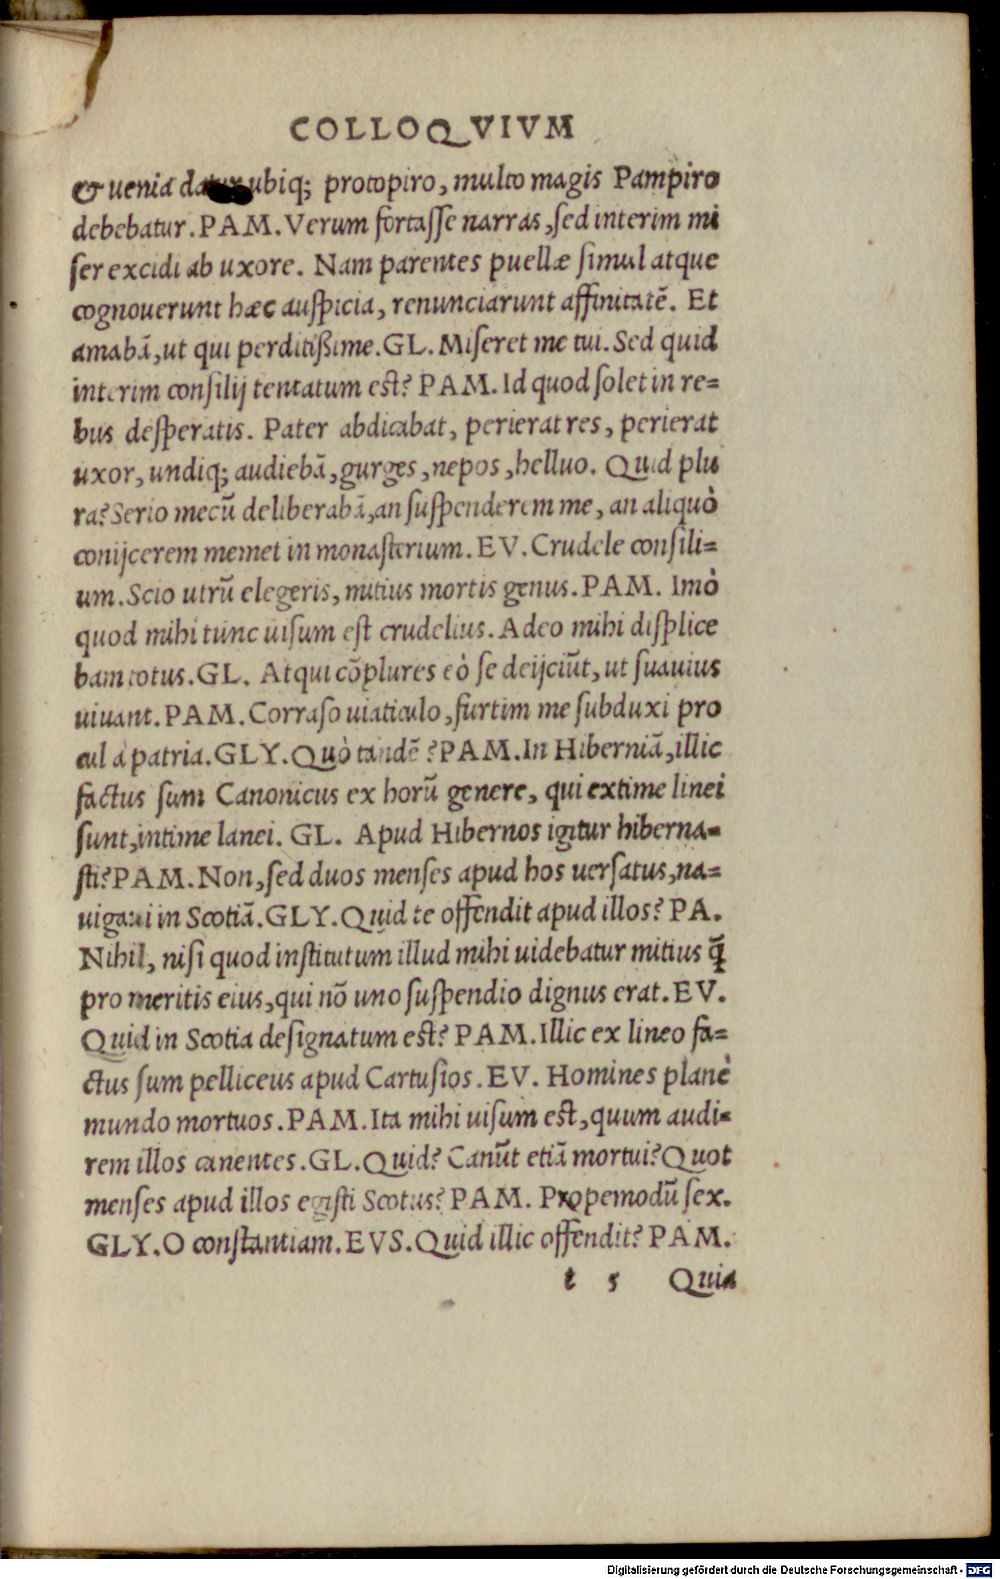 COLLOQVIVM
& uenia datur ubiq; protopiro, multo magis Pampiro
debebatur. PAM. Verum fortasse narras, sed interim mi
ser excidi ab uxore. Nam parentes puellæ simul atque
cognouerunt hæc auspicia, renunciarunt affinitatē. Et
amabā, ut qui perditißime. GL. Miseret me tui. Sed quid
interim consilij tentatum est? PAM. Id quod solet in re=
bus desperatis. Pater abdicabat, perierat res, perierat
uxor, undiq; audiebā, gurges, nepos, helluo. Quid plu
ra? Serio mecū deliberabā, an suspenderem me, an aliquò
conijcerem memet in monasterium. EV. Crudele consili=
um. Scio utrū elegeris, mitius mortis genus. PAM. Imò
quod mihi tunc uisum est crudelius. Adeo mihi displice
bam totus. GL. Atqui cōplures eò se deijciūt, ut suauius
uiuant. PAM. Corraso uiaticulo, furtim me subduxi pro
cul à patria. GLY. Quò tandē? PAM. In Hiberniā, illic
factus sum Canonicus ex horū genere, qui extime linei
sunt, intime lanei. GL. Apud Hibernos igitur hiberna=
sti? PAM. Non, sed duos menses apud hos uersatus, na=
uigaui in Scotiā. GLY. Quid te offendit apud illos? PA.
Nihil, nisi quod institutum illud mihi uidebatur mitius q̄
pro meritis eius, qui nō uno suspendio dignus erat. EV.
Quid in Scotia designatum est? PAM. Illic ex lineo fa=
ctus sum pelliceus apud Cartusios. EV. Homines planè
mundo mortuos. PAM. Ita mihi uisum est, quum audi=
rem illos canentes. GL. Quid? Canūt etiā mortui? Quot
menses apud illos egisti Scotus? PAM. Propemodū sex.
GLY. O constantiam. EVS. Quid illic offendit? PAM.
t 5 Quia
Digitalisierung gefördert durch die Deutsche Forschungsgemeinschaft - DFG